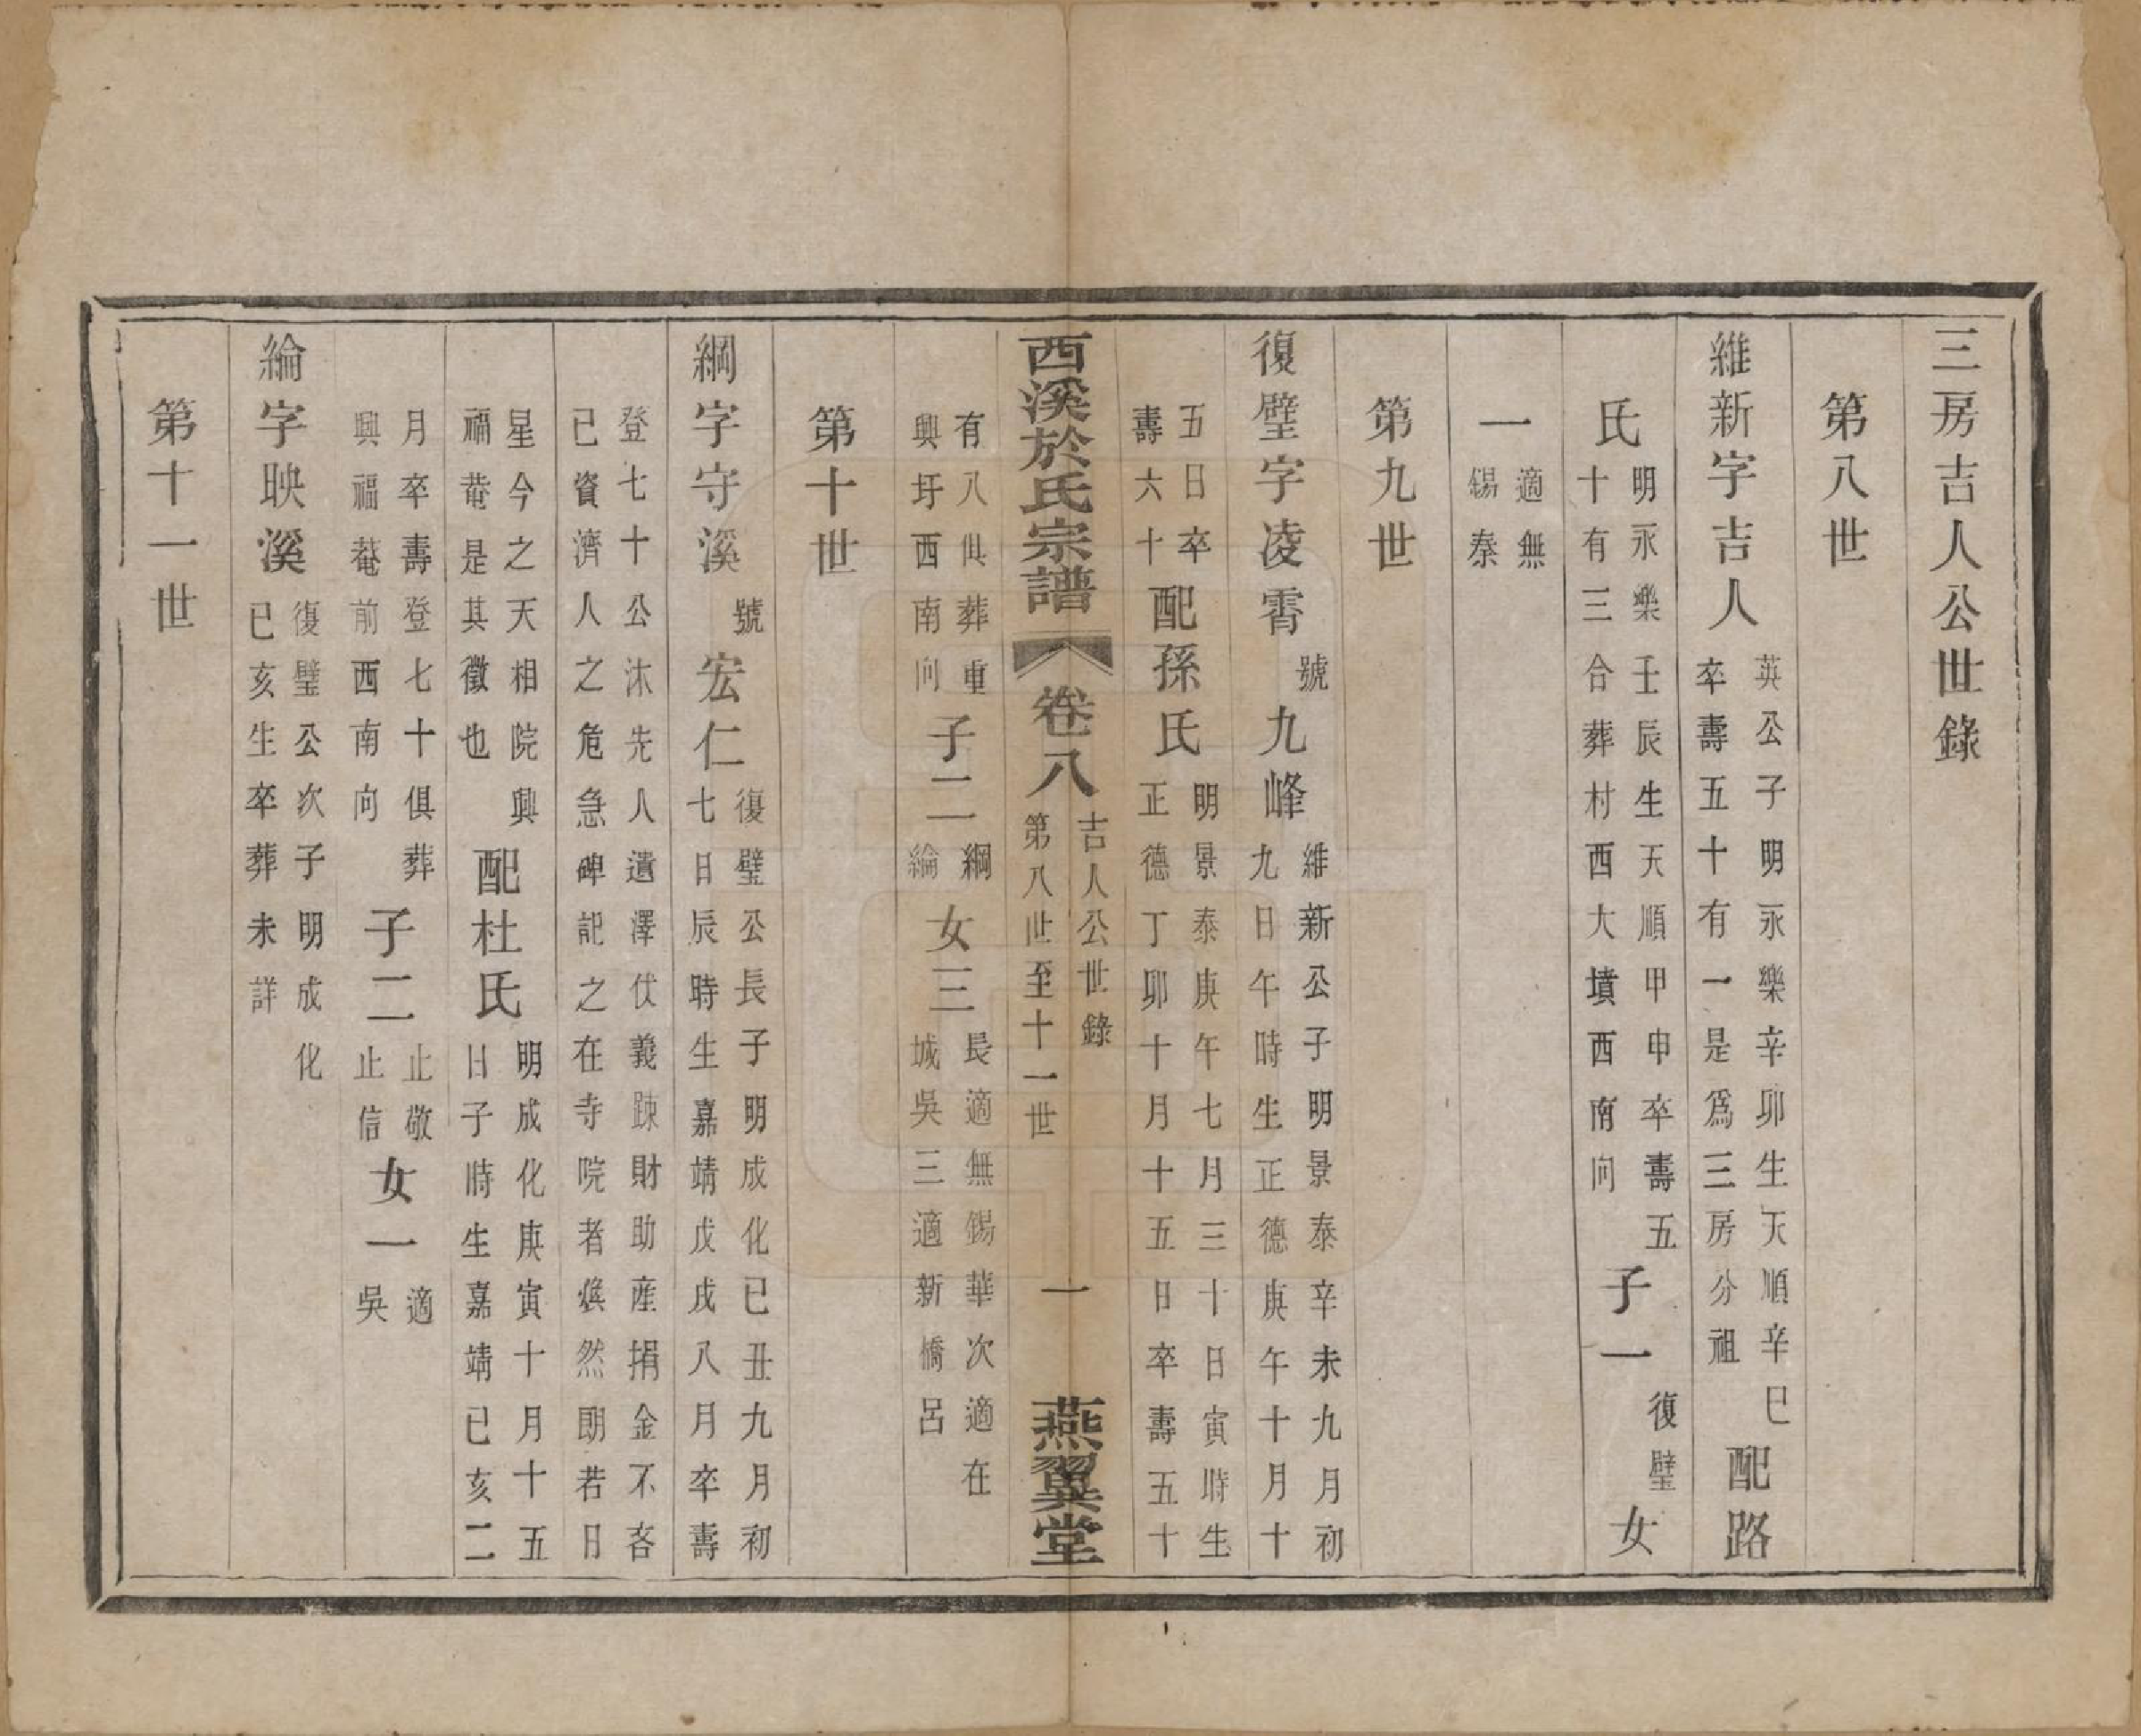 三房吉人公世錄
第八世
維新字吉人
英公子明永樂辛卯生天順辛巳
卒壽五十有一是爲三房分祖
配路
氏
明永樂壬辰生天順甲申卒壽五
十有三合葬村西大墳西南向
子一
復璧
女
一
適無
錫秦
第九世
復璧字凌霄
號
九峰
維新公子明景泰辛未九月初
九日午時生正德庚午十月十
五日卒
壽六十
配孫氏
明景泰庚午七月三十日寅時生
正德丁卯十月十五日卒壽五十
西溪於氏宗譜
卷八
吉人公世錄
第八世至十一世
一
燕翼堂
有八俱葬重
興圩西南向
子二
綱
綸
女三
長適無錫華次適在
城吳三適新橋呂
第十世
綱字守溪
號
宏仁
復璧公長子明成化己丑九月初
七日辰時生嘉靖戊戌八月卒壽
登七十公沐先人遺澤仗義疎財助產捐金不吝
己資濟人之危急碑記之在寺院者煥然明若日
星今之天相院興
福菴是其徵也
配杜氏
明成化庚寅十月十五
日子時生嘉靖己亥二
月卒壽登七十俱葬
興福菴前西南向
子二
止敬
止信
女一
適
吳
綸字映溪
復璧公次子明成化
己亥生卒葬未詳
第十一世